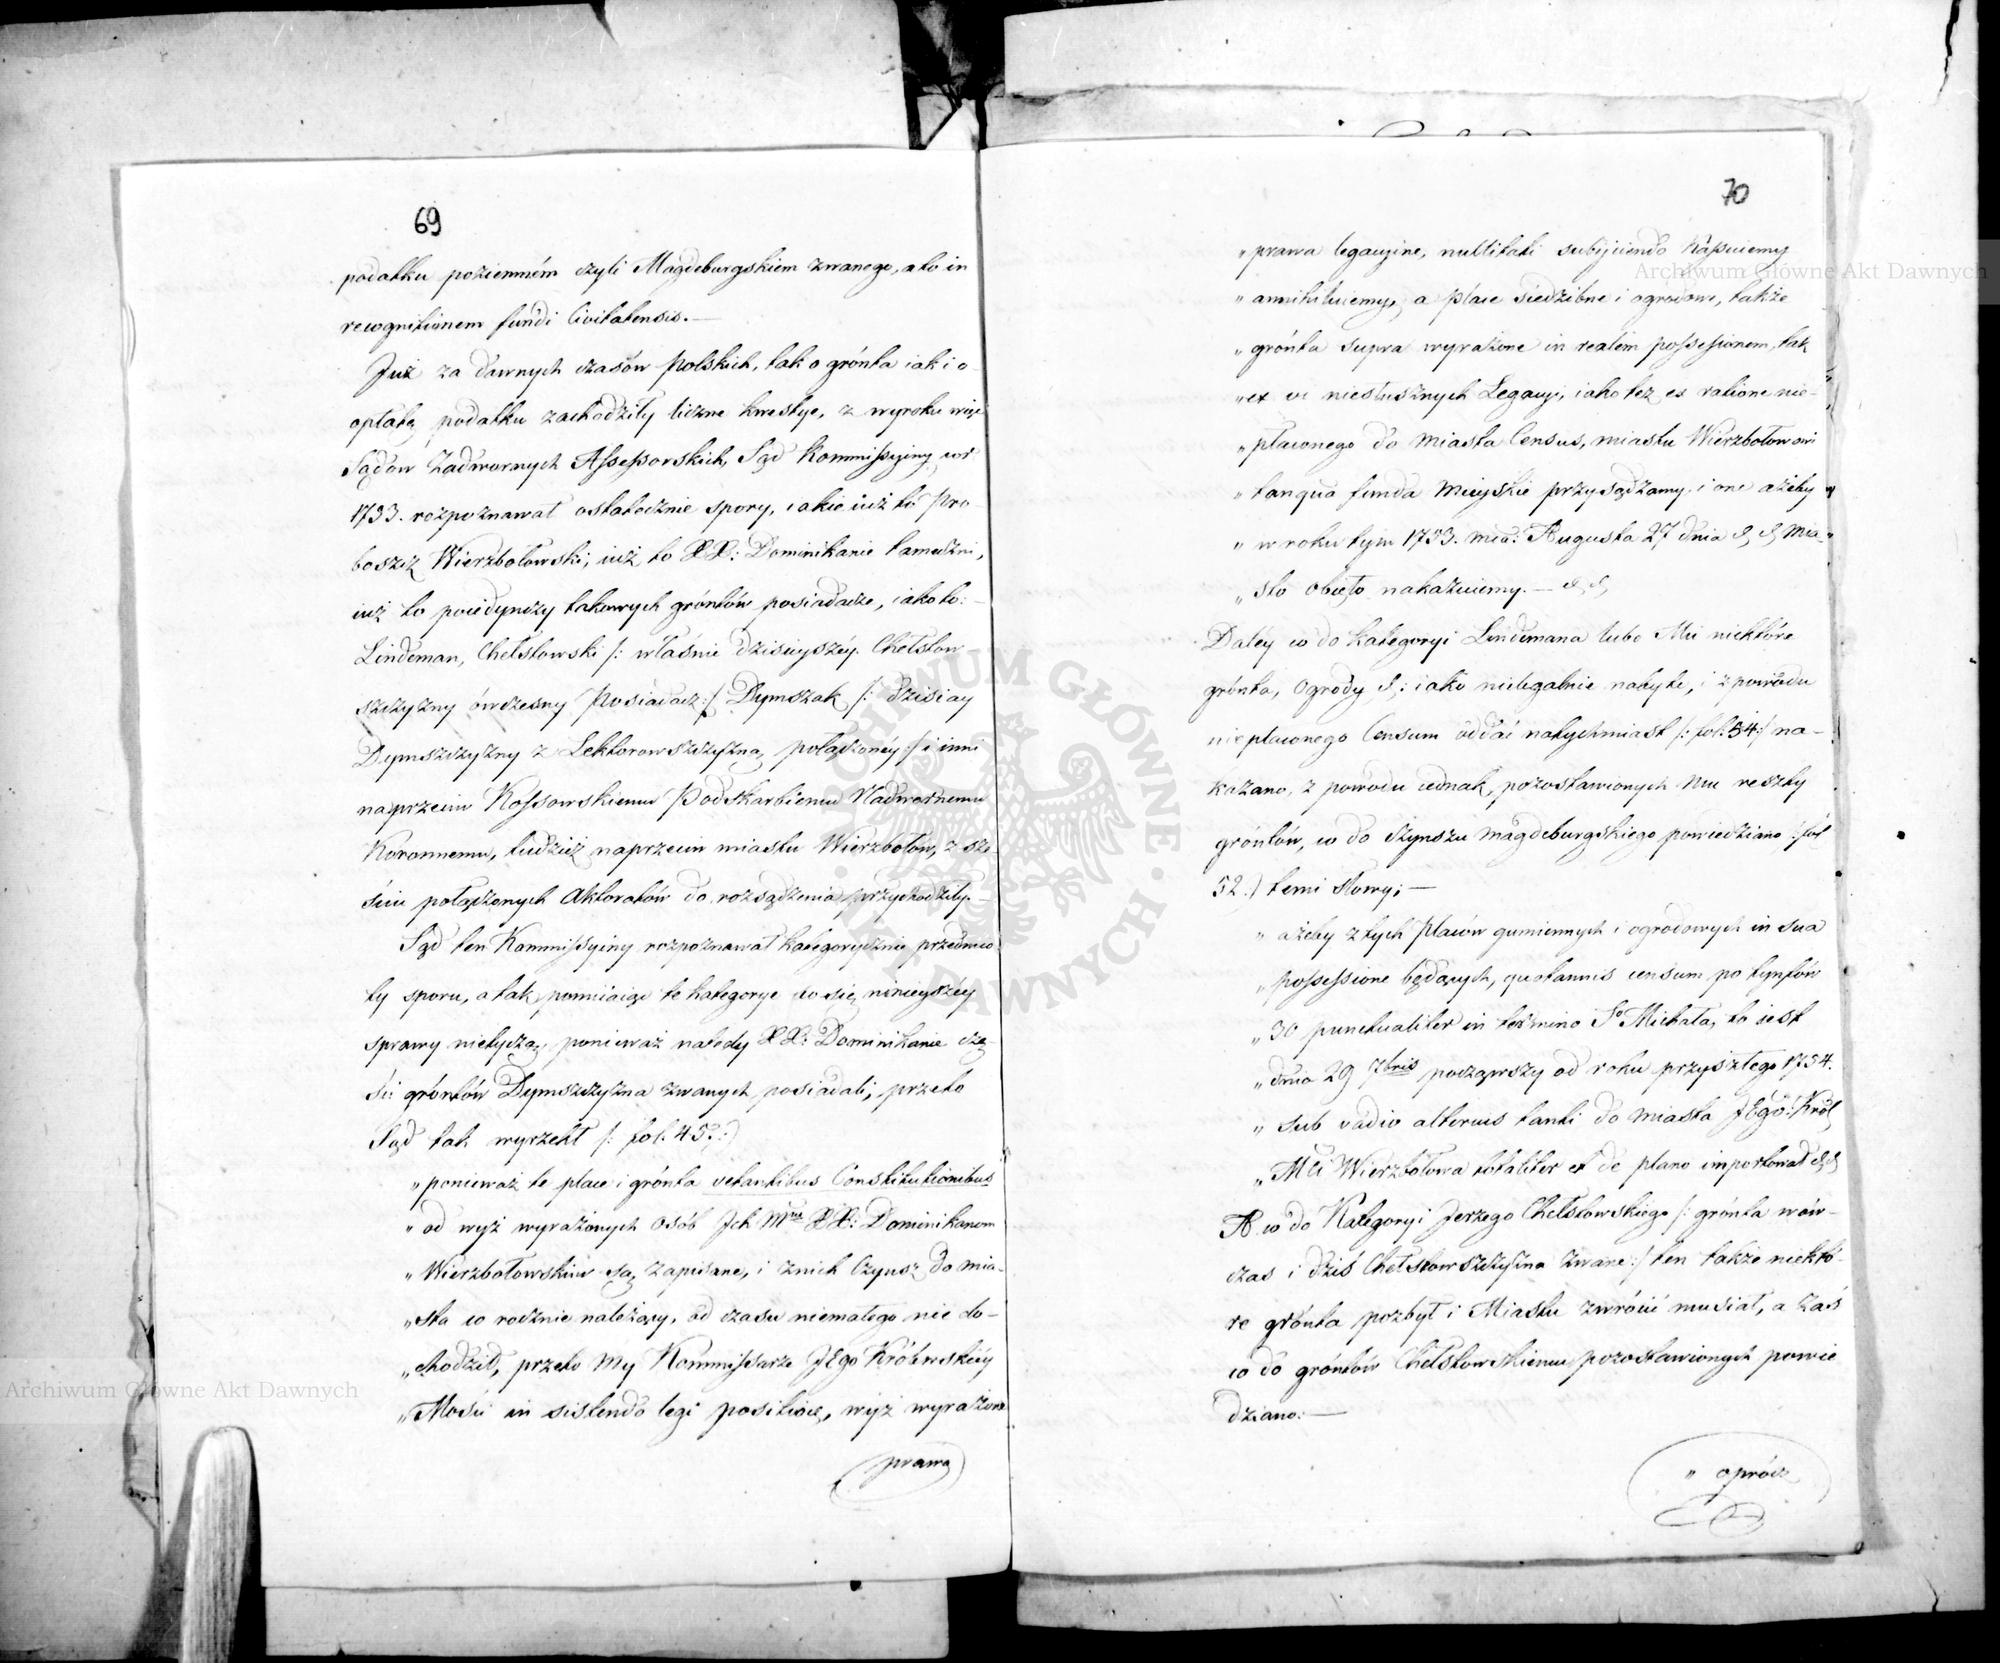 69
podatku poziemném czyli Magdeburgskiem zwanego, a to in
recognitionem fundi Civitatensis. —
Już za dawnych czasów Polskich, tak o grónta iak i o
opłatę podatku zachodziły liczne kwestye, z wyroku więc
Sądów Zadwornych Assessorskich, Sąd Kommissyiny wr
1753. rozpoznawał ostatecznie spory, iakie iuż to Pro-
boszcz Wierzbołowski, iuż to XX: Dominikanie tameczni,
iuż to poiedynczy takowych gróntów posiadacze, iako to:
Lindeman, Chełstowski /: właśnie dzisieyszéy Chełstow
szczyzny ówczesny Posiadacz :/ Dymszak /: dzisiay
Dymszczyzny z Lektorowszczyzną połączonéy :/ i inni
naprzeciw Kossowskiemu Podskarbiemu Nadwornemu
Koronnemu, tudzież naprzeciw miastu Wierzbołów, z sze-
ściu połączonych Aktoratów do rozsądzenia przychodziły. —
Sąd ten Kommissyiny rozpoznawał kategorycznie przedmio
ty sporu, a tak pomiiaiąc te kategorye co się ninieyszéy
sprawy nietyczą, ponieważ natedy XX: Dominikanie czę-
ść gróntów Dymszczyzna zwanych posiadali, przeto
Sąd tak wyrzekł /: fol. 45. :/
„ponieważ te place i grónta vetantibus Constitutionibus
„ od wyż wyrażonych osób Ich Mciw XX: Dominikanom
„ Wierzbołowskim są zapisane, i znich Czynsz do mia-
„sta co rocznie należący, od czasu niemałego nie do-
„chodził, przeto My Kommissarze JEgo Królewskiéy
„Mości in sistendo legi positivæ, wyż wyrażone
prawa
70
„ prawa legacyine, nullitati subijciendo kassuiemy
„ annihiluiemy, a place siedzibne i ogrodowe, także
„ grónta supra wyrażone in realem possessionem, tak
„ ex vi niesłusznych Legacyi, iako też ex ratione nie-
„ płaconego do miasta Census, miastu Wierzbołowowi
„ tanqua funda Mieyskie przysądzamy i one ażeby
„ w roku tym 1753. mca: Augusta 27 dnia &, &, Mia-
„ sto obięło nakazuiemy. — &, &,
Daléy co do kategoryi Lindemana lubo Mu niektóre
grónta, Ogrody &,: iako nielegalnie nabyte, i z powodu
nie płaconego Censum oddać natychmiast /: fol: 54 :/ na-
kazano, z powodu iednak, pozostawionych Mu reszty
gróntów, co do Czynszu Magdeburgskiego powiedziano /: fol
52. :/ temi słowy; —
„ ażeby z tych Placów gumiennych i ogrodowych in sua
„ possessione będących, quotannis censum po tynfów
„ 30 punctualiter in termino So Michała, to iest
„ dnia 29 7bris począwszy od roku przyszłego 1754.
„ sub vadio alterius tanti do miasta JEgo: Król
„ Mci Wierzbołowa totaliter et de plano importował &, &
A co do Kategoryi Jerzego Chełstowskiego /: grónta wów-
czas i dziś Chełstowszczyzna zwane :/ ten także niektó-
re grónta pozbył i Miastu zwrócić musiał, a zaś
co do gróntów Chełstowskiemu pozostawionych powie
dziano: —
„ oprócz
Archiwum Główne Akt Dawnych
Archiwum Główne Akt Dawnych
ARCHIWUM GŁÓWNE AKT DAWNYCH